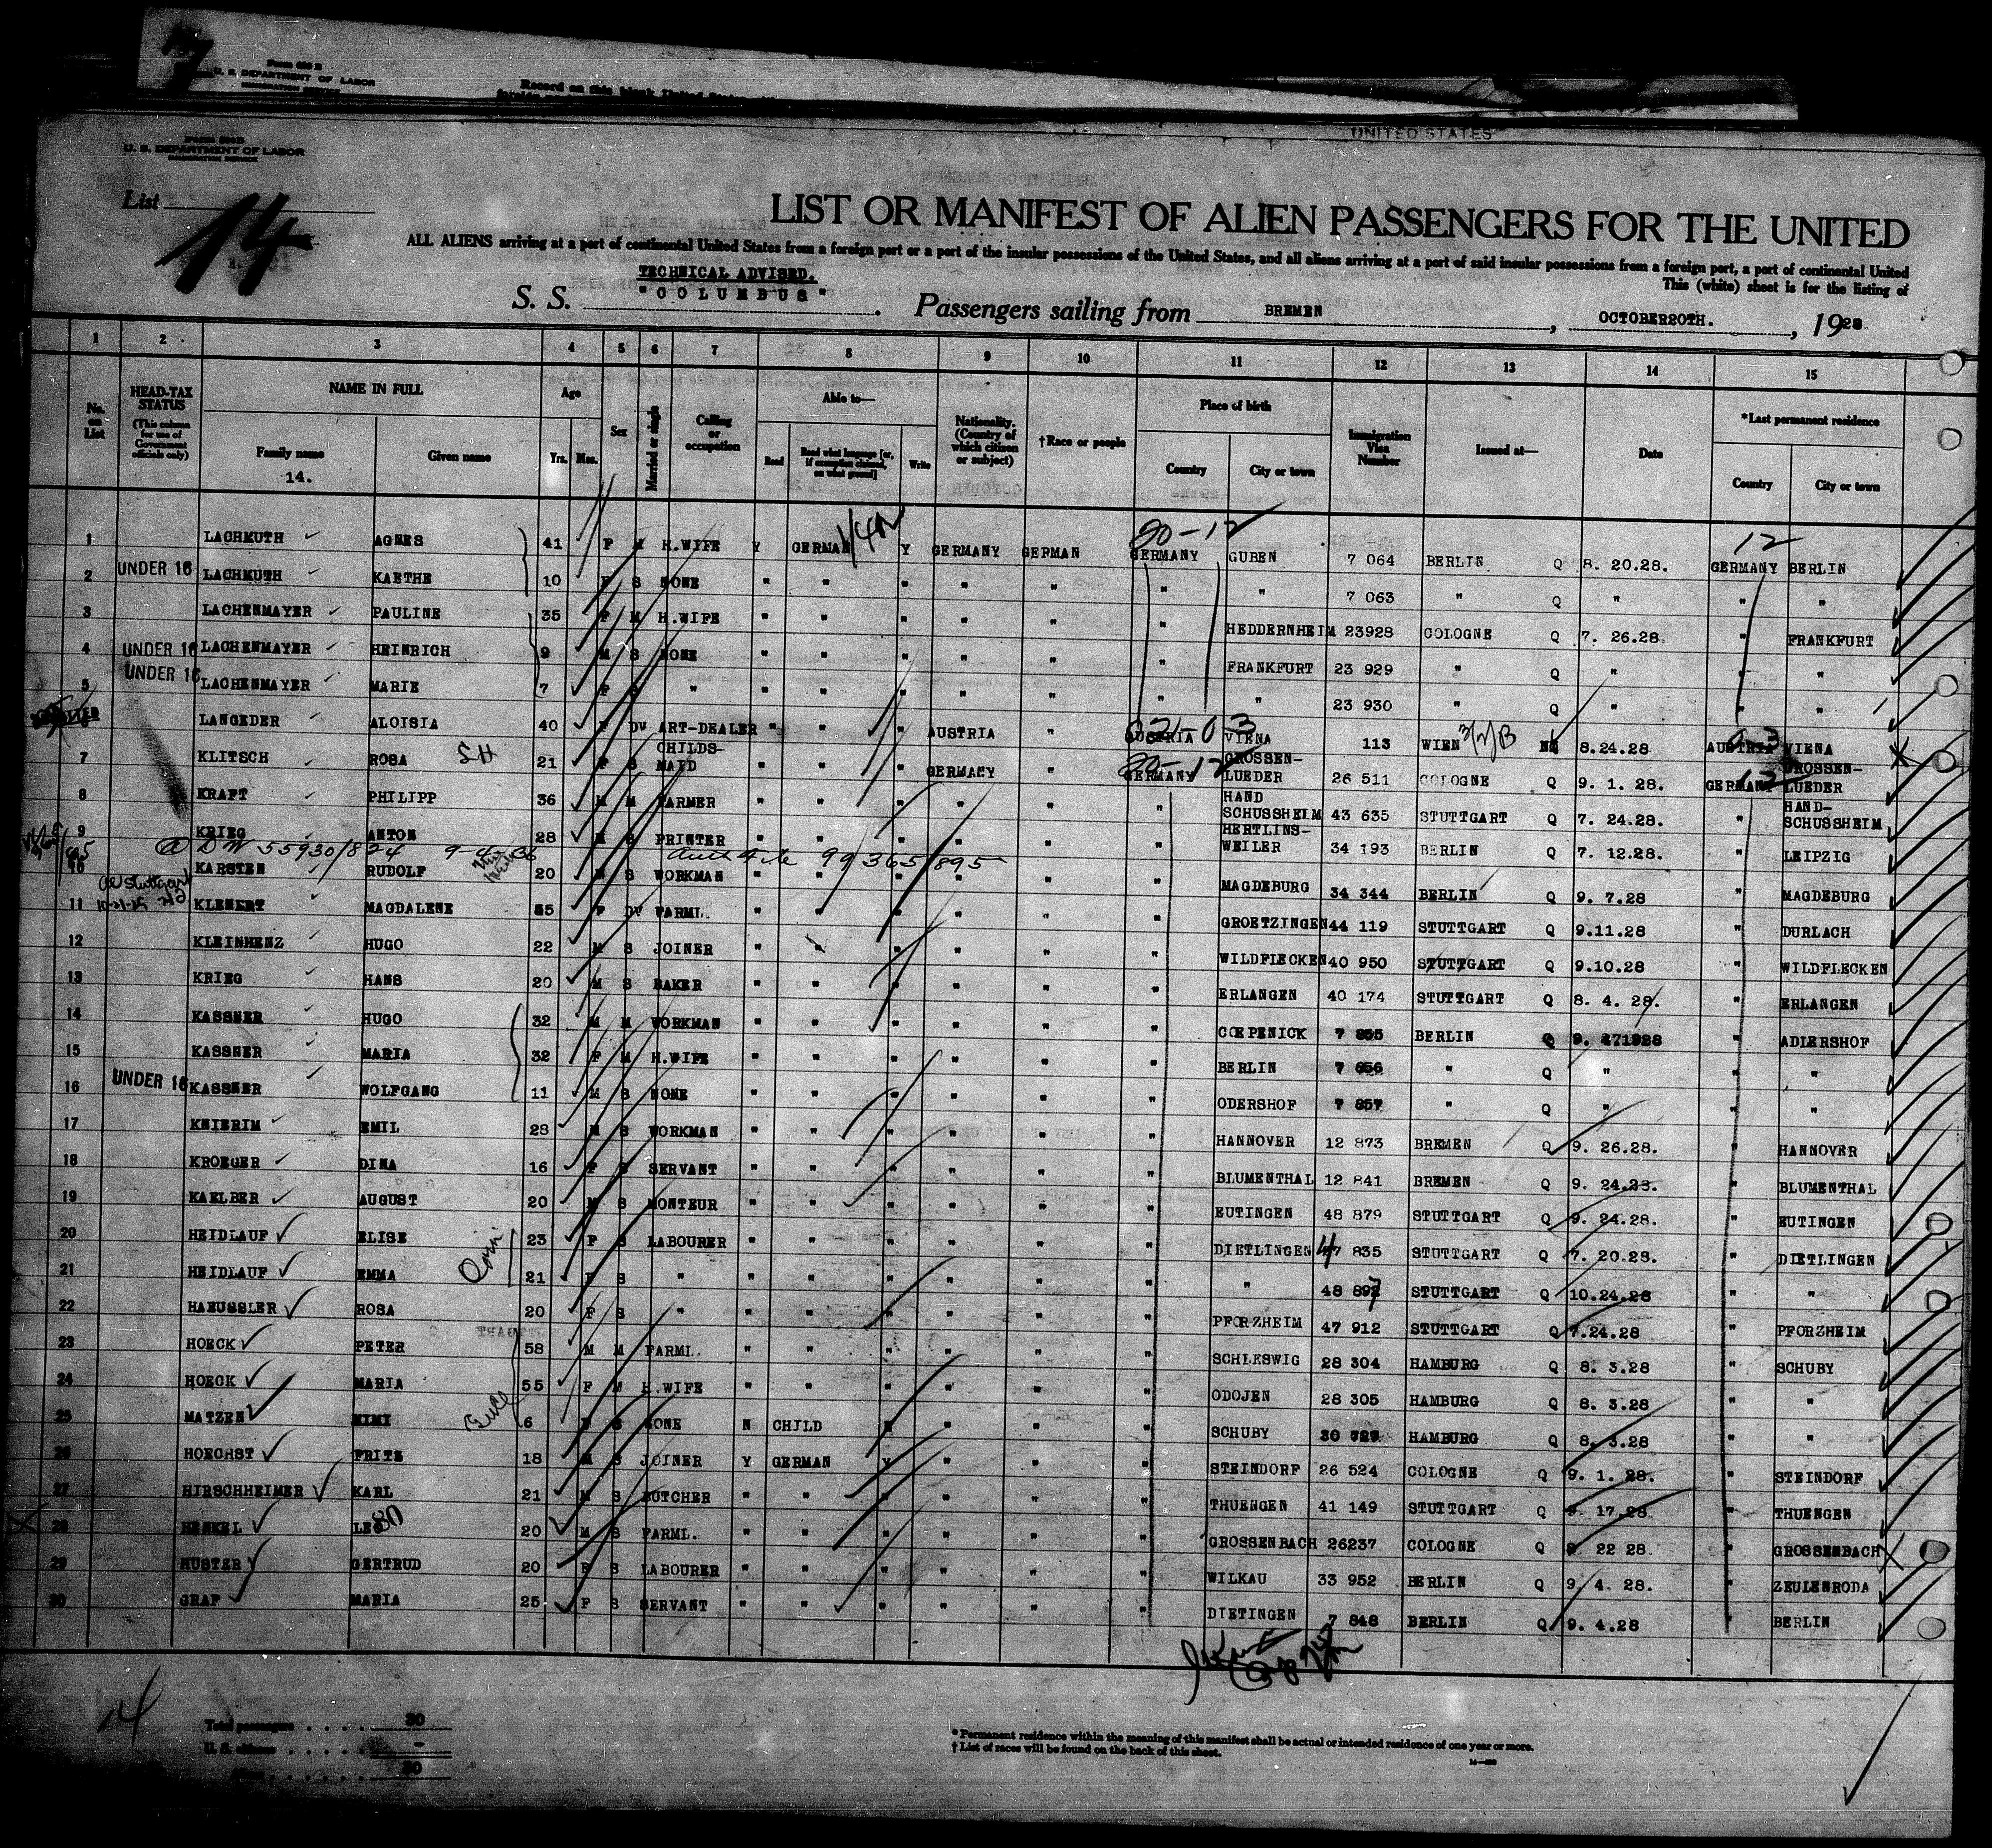 Form 500 B
U. S. DEPARTMENT OF LABOR
IMMIGRATION SERVICE
Record on this blank United States
UNITED STATES
U. S. DEPARTMENT OF LABOR
IMMIGRATION SERVICE
List 14
LIST OR MANIFEST OF ALIEN PASSENGERS FOR THE UNITED
ALL ALIENS arriving at a port of continental United States from a foreign port or a port of the insular possessions of the United States, and all aliens arriving at a port of said insular possessions from a foreign port, a port of continental United
This (white) sheet is for the listing of
TECHNICAL ADVISED.
S. S. "COLUMBUS". Passengers sailing from BREMEN, OCTOBER20TH., 1928
1 2 3 4 5 6 7 8 9 10 11 12 13 14 15
No. on List
HEAD-TAX STATUS (This column for use of Government officials only)
NAME IN FULL Family name Given name
14.
Age Yrs. Mos.
Sex
Married or single
Calling or occupation
Able to— Read Read what language [or, if exemption claimed, on what ground] Write
Nationality. (Country of which citizen or subject)
†Race or people
Place of birth Country City or town
Immigration Visa Number
Issued at—
Date
*Last permanent residence Country City or town
1 LACHMUTH AGNES 41 F M H.WIFE Y GERMAN Y GERMANY GERMAN GERMANY GUBEN 7 064 BERLIN Q 8. 20.28. GERMANY BERLIN
2 UNDER 16 LACHMUTH KAETHE 10 F S NONE " " " " " " " 7 063 " Q " " "
3 LACHENMAYER PAULINE 35 F M H.WIFE " " " " " " HEDDERNHEIM 23928 COLOGNE Q 7. 26.28. " FRANKFURT
4 UNDER 16 LACHENMAYER HEINRICH 9 M S NONE " " " " " " FRANKFURT 23 929 " Q " " "
5 UNDER 16 LACHENMAYER MARIE 7 F S " " " " " " " " 23 930 " Q " " "
LANGEDER ALOISIA 40 F DV ART-DEALER " " " AUSTRIA " AUSTRIA VIENA 113 WIEN 8.24.28 AUSTRIA VIENA
7 KLITSCH ROSA 21 F S CHILDS-MAID " " " GERMANY " GERMANY GROSSEN-LUEDER 26 511 COLOGNE Q 9. 1. 28. GERMANY GROSSEN-LUEDER
8 KRAFT PHILIPP 36 M M FARMER " " " " " " HAND SCHUSSHEIM 43 635 STUTTGART Q 7. 24.28. " HAND-SCHUSSHEIM
9 KRIEG ANTON 28 M S PRINTER " " " " " " HERTLINS-WEILER 34 193 BERLIN Q 7. 12.28. " LEIPZIG
55930/824 9-4-36 99365/895
10 KARSTEN RUDOLF 20 M S WORKMAN " " " " " " MAGDEBURG 34 344 BERLIN Q 9. 7.28 " MAGDEBURG
11 KLENERT MAGDALENE 55 F DV FARML. " " " " " " GROETZINGEN 44 119 STUTTGART Q 9.11.28 " DURLACH
12 KLEINHENZ HUGO 22 M S JOINER " " " " " " WILDFLECKEN 40 950 STUTTGART Q 9.10.28 " WILDFLECKEN
13 KRIEG HANS 20 M S BAKER " " " " " " ERLANGEN 40 174 STUTTGART Q 8. 4. 28. " ERLANGEN
14 KASSNER HUGO 32 M M WORKMAN " " " " " " COEPENICK 7 855 BERLIN Q 9. 271928 " ADLERSHOF
15 KASSNER MARIA 32 F M H.WIFE " " " " " " BERLIN 7 856 " Q " " "
16 UNDER 16 KASSNER WOLFGANG 11 M S NONE " " " " " " ODERSHOF 7 857 " Q " " "
17 KNIERIM EMIL 28 M S WORKMAN " " " " " " HANNOVER 12 873 BREMEN Q 9. 26.28. " HANNOVER
18 KROEGER DINA 16 F S SERVANT " " " " " " BLUMENTHAL 12 841 BREMEN Q 9. 24.28. " BLUMENTHAL
19 KAELBER AUGUST 20 M S MONTEUR " " " " " " EUTINGEN 48 879 STUTTGART Q 9. 24.28. " EUTINGEN
20 HEIDLAUF ELISE 23 F S LABOURER " " " " " " DIETLINGEN 47 835 STUTTGART Q 7. 20.28. " DIETLINGEN
21 HEIDLAUF EMMA 21 F S " " " " " " " " 48 897 STUTTGART Q 10.24.28 " "
22 HAEUSSLER ROSA 20 F S " " " " " " " PFORZHEIM 47 912 STUTTGART Q 7.24.28 " PFORZHEIM
23 HOECK PETER 58 M M FARML. " " " " " " SCHLESWIG 28 304 HAMBURG Q 8. 3.28 " SCHUBY
24 HOECK MARIA 55 F M H.WIFE " " " " " " ODOJEN 28 305 HAMBURG Q 8. 3.28 " "
25 MATZEN MIMI 6 F S NONE N CHILD N " " " SCHUBY HAMBURG Q 8. 3.28 " "
26 HOECHST FRITZ 18 M S JOINER Y GERMAN Y " " " STEINDORF 26 524 COLOGNE Q 9. 1. 28. " STEINDORF
27 HIRSCHHEIMER KARL 21 M S BUTCHER " " " " " " THUENGEN 41 149 STUTTGART Q 9. 17.28 " THUENGEN
28 HENKEL LEO 20 M S FARML. " " " " " " GROSSENBACH 26237 COLOGNE Q 22 28 " GROSSENBACH
29 HUSTER GERTRUD 20 F S LABOURER " " " " " " WILKAU 33 952 BERLIN Q 9. 4. 28. " ZEULENRODA
30 GRAF MARIA 25 F S SERVANT " " " " " " DIETINGEN 7 848 BERLIN Q 9. 4.28 " BERLIN
Total passengers 30
U. S. citizens -
Aliens 30
* Permanent residence within the meaning of this manifest shall be actual or intended residence of one year or more.
† List of races will be found on the back of this sheet.